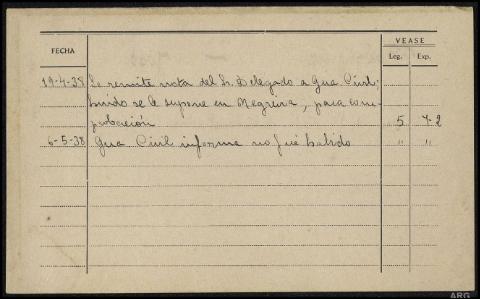 VEASE
FECHA
Leg. Exp.
19-4-38 Se remite nota del Sr. Delegado a Gua. Civil;
huido se le supone en Negreira, para com-
probación 5 7-2
6-5-38 Gua. Civil informa no fué habido " "
ARG